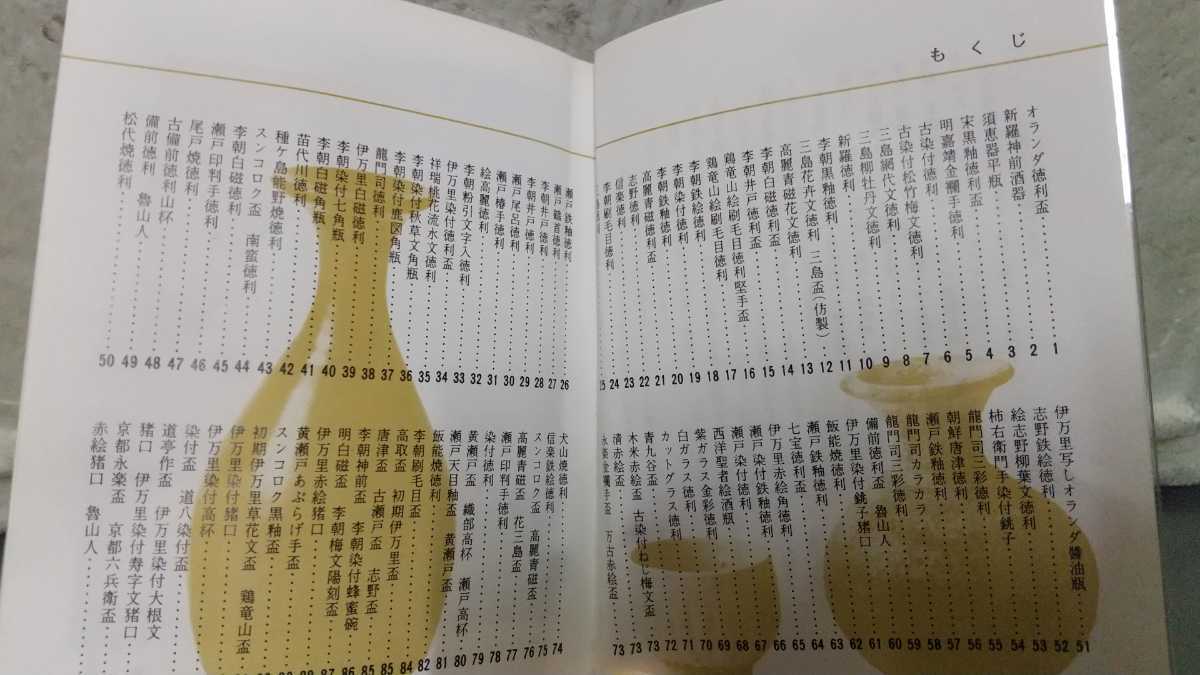 もくじ
オランダ徳利盃……1
新羅神前酒器……2
須恵器平瓶……3
宋黒釉徳利……4
明嘉靖金襴手徳利……5
古染付松竹梅文徳利……6
古染付徳利……7
三島網代文徳利……8
三島柳牡丹文徳利……9
新羅徳利……10
李朝黒釉徳利……11
三島花卉文徳利 三島盃(仿製)……12
高麗青磁花文徳利……13
李朝白磁徳利盃……14
李朝井戸徳利盃……15
鶏竜山絵刷毛目徳利堅手盃……16
鶏竜山絵刷毛目徳利……17
李朝鉄絵徳利……18
李朝染付徳利……19
李朝鉄釉徳利……20
高麗青磁徳利盃……21
志野徳利……22
信楽徳利……23
李朝刷毛目徳利……24
徳利……25
瀬戸鉄釉徳利……26
瀬戸鶴首徳利……27
李朝井戸徳利……28
李朝井戸徳利……29
瀬戸尾呂徳利……30
瀬戸椿手徳利……31
絵高麗徳利……32
李朝粉引文字入徳利……33
伊万里染付徳利盃……34
祥瑞桃花流水文徳利……35
李朝染付秋草文角瓶……36
李朝染付鹿図角瓶……37
龍門司徳利……38
伊万里白磁徳利……39
李朝染付七角瓶……40
李朝白磁角瓶……41
苗代川徳利……42
種ケ島能野焼徳利……43
スンコロク盃 南蛮徳利……44
李朝白磁徳利……45
瀬戸印判手徳利……46
尾戸焼徳利……47
古備前徳利山杯……48
備前徳利 魯山人……49
松代焼徳利……50
伊万里写しオランダ醬油瓶……51
志野鉄絵徳利……52
絵志野柳葉文徳利……53
柿右衛門手染付銚子……54
龍門司三彩徳利……55
朝鮮唐津徳利……56
瀬戸鉄釉徳利……57
龍門司カラカラ……58
龍門司三彩徳利……59
備前徳利盃 魯山人……60
伊万里染付銚子猪口……61
飯能焼徳利……62
瀬戸鉄釉徳利……63
七宝徳利盃……64
伊万里赤絵角徳利……65
瀬戸染付鉄釉徳利……66
瀬戸染付徳利……67
西洋聖者絵酒瓶……68
紫ガラス金彩徳利……69
白ガラス徳利……70
カットグラス徳利……71
青九谷盃……72
木米赤絵盃 古染付ねじ梅文盃……73
清赤絵盃……73
永楽金襴手盃 万古赤絵盃……73
犬山焼徳利……74
信楽鉄絵徳利……75
スンコロク盃 高麗青磁盃……76
高麗青磁盃 花三島盃……77
瀬戸印判手徳利……78
染付徳利……79
黄瀬戸盃 織部高杯 瀬戸高杯……80
瀬戸天目釉盃 黄瀬戸盃……81
飯能焼徳利……82
李朝刷毛目盃……84
高取盃 初期伊万里盃……85
唐津盃 古瀬戸盃 志野盃……85
李朝神前盃 李朝染付蜂蜜碗……86
明白磁盃 李朝梅文陽刻盃……87
伊万里赤絵猪口……88
黄瀬戸あぶらげ手盃
スンコロク黒釉盃
初期伊万里草花文盃 鶏竜山盃
伊万里染付猪口
伊万里染付高杯
染付盃 道八染付盃
道亭作盃 伊万里染付大根文
猪口 伊万里染付寿字文猪口
京都永楽盃 京都六兵衛盃
赤絵猪口 魯山人